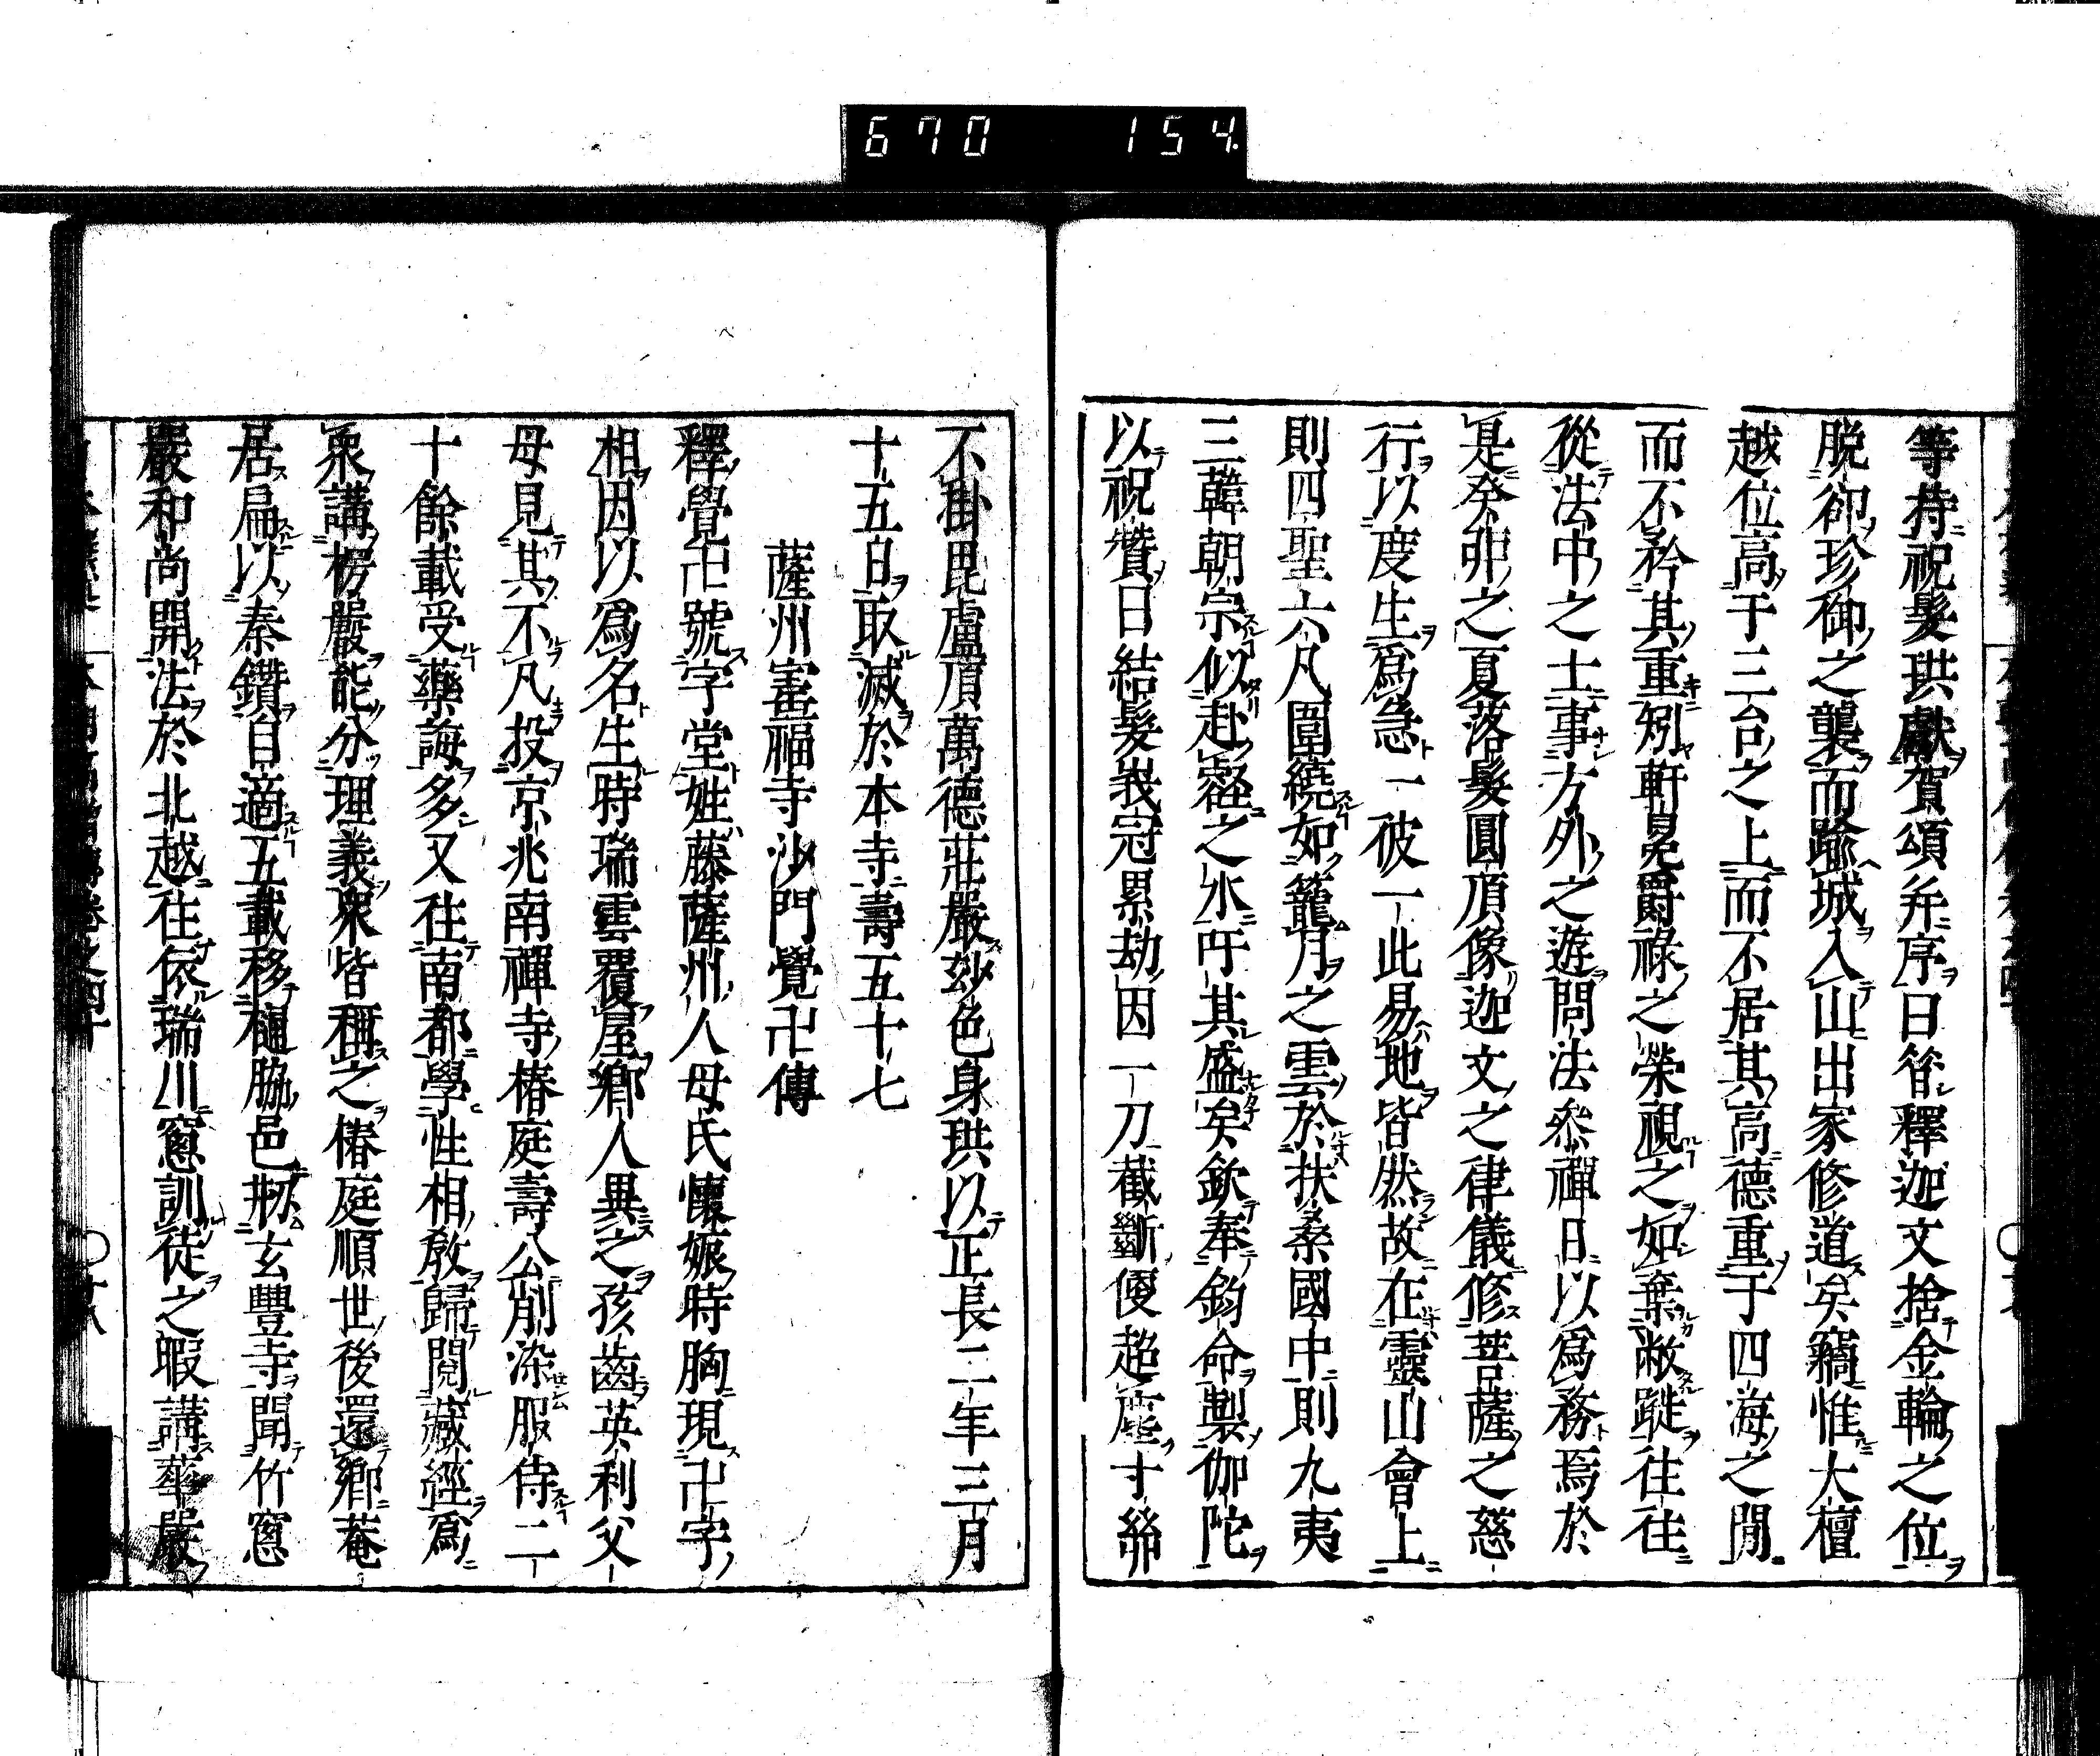 670 154
等持祝髮珙獻賀頌并序曰昝釋迦文捨金輪之位
脫卻珍御之襲而踰城入山出家修道矣竊惟大檀
越位高于三台之上而不居其高德重于四海之間
而不矜其重矧軒冕爵祿之榮視之如棄敝蹝往往
從法中之士事方外之遊問法參禪日以爲務焉於
是癸卯之夏落髮圓頂像迦文之律儀修菩薩之慈
行以度生爲急一彼一此易地皆然故在靈山會上
則四聖六凡圍繞如籠月之雲於扶桑國中則九夷
三韓朝宗似赴壑之水吁其盛矣欽奉鈞命製伽陀
以祝贊曰結髮峩冠累劫因一刀截斷便超塵寸絲
不掛毘盧頂萬德莊嚴玅色身珙以正長二年三月
十五日取滅於本寺壽五十七
薩州富福寺沙門覺卍傳
釋覺卍號字堂姓藤薩州人母氏懷娠時胸現卍字
相因以爲名生時瑞雲覆屋鄉人異之孩齒英利父
母見其不凡投京兆南禪寺椿庭壽公削染服侍二
十餘載受藥誨多又往南都學性相教歸閱藏經爲
衆講楞嚴能分理義衆皆稱之椿庭順世後還鄉菴
居扁以秦鑽自適五載移樋脇邑剏玄豐寺聞竹窻
嚴和尚開法於北越往依瑞川窻訓徒之暇講華嚴